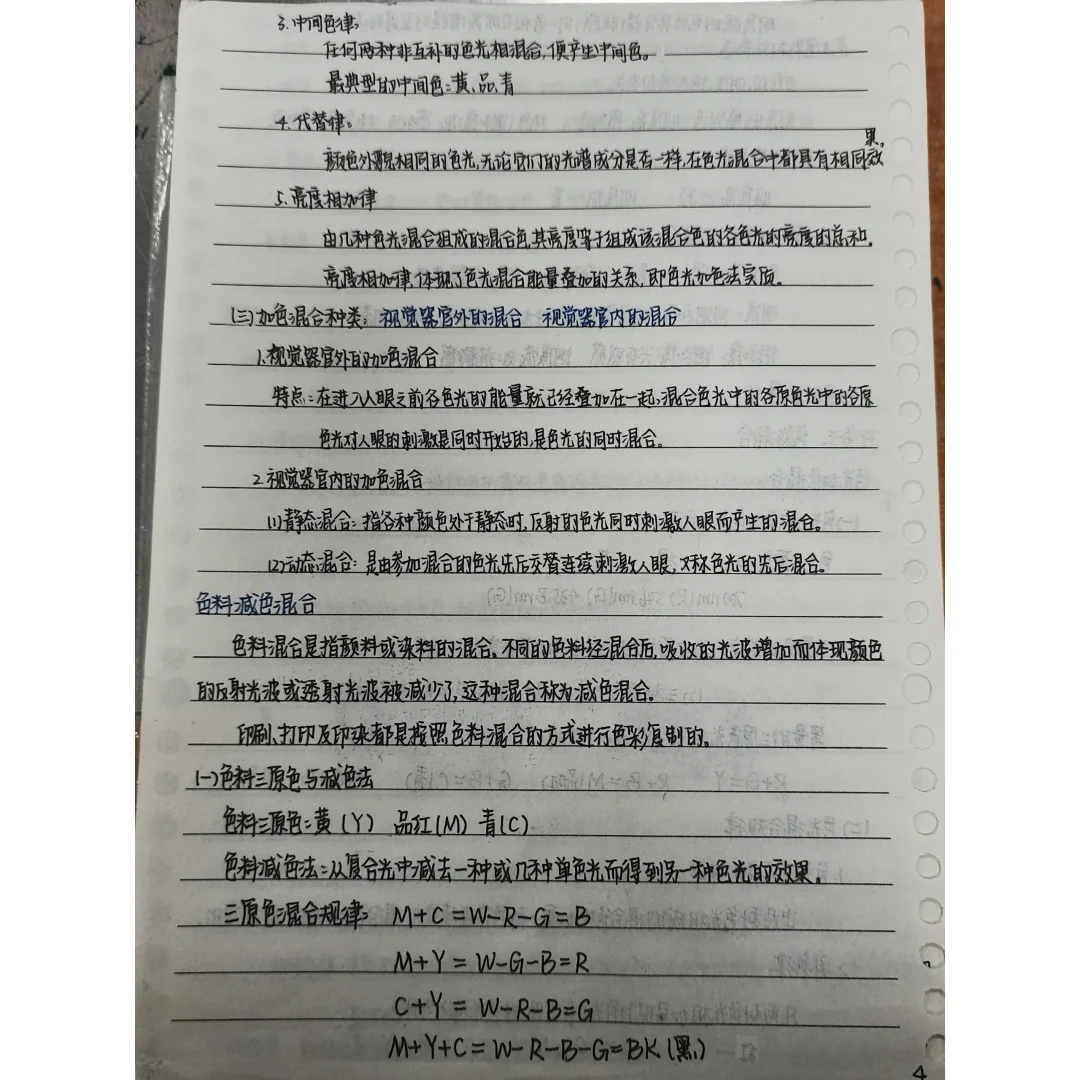 3.中间色律:
任何两种非互补的色光相混合,便产生中间色。
最典型的中间色:黄、品、青
4.代替律:
颜色外貌相同的色光,无论它们的光谱成分是否一样,在色光混合中都具有相同效果。
5.亮度相加律
由几种色光混合组成的混合色,其亮度等于组成该混合色的各色光的亮度的总和。
亮度相加律,体现了色光混合能量叠加的关系,即色光加色法实质。
(三)加色混合种类: 视觉器官外的混合 视觉器官内的混合
1.视觉器官外的加色混合
特点:在进入人眼之前各色光的能量就已经叠加在一起,混合色光中的各原色光中的各原
色光对人眼的刺激是同时开始的,是色光的同时混合。
2.视觉器官内的加色混合
(1)静态混合:指各种颜色处于静态时,反射的色光同时刺激人眼而产生的混合。
(2)动态混合:是由参加混合的色光先后交替连续刺激人眼,又称色光的先后混合。
色料减色混合
色料混合是指颜料或染料的混合。不同的色料经混合后,吸收的光波增加而体现颜色
的反射光波或透射光波被减少了,这种混合称为减色混合。
印刷、打印及印染都是按照色料混合的方式进行色彩复制的。
(一)色料三原色与减色法
色料三原色:黄(Y) 品红(M) 青(C)
色料减色法:从复合光中减去一种或几种单色光而得到另一种色光的效果。
三原色混合规律: M+C=W-R-G=B
M+Y=W-G-B=R
C+Y=W-R-B=G
M+Y+C=W-R-B-G=BK(黑)
4